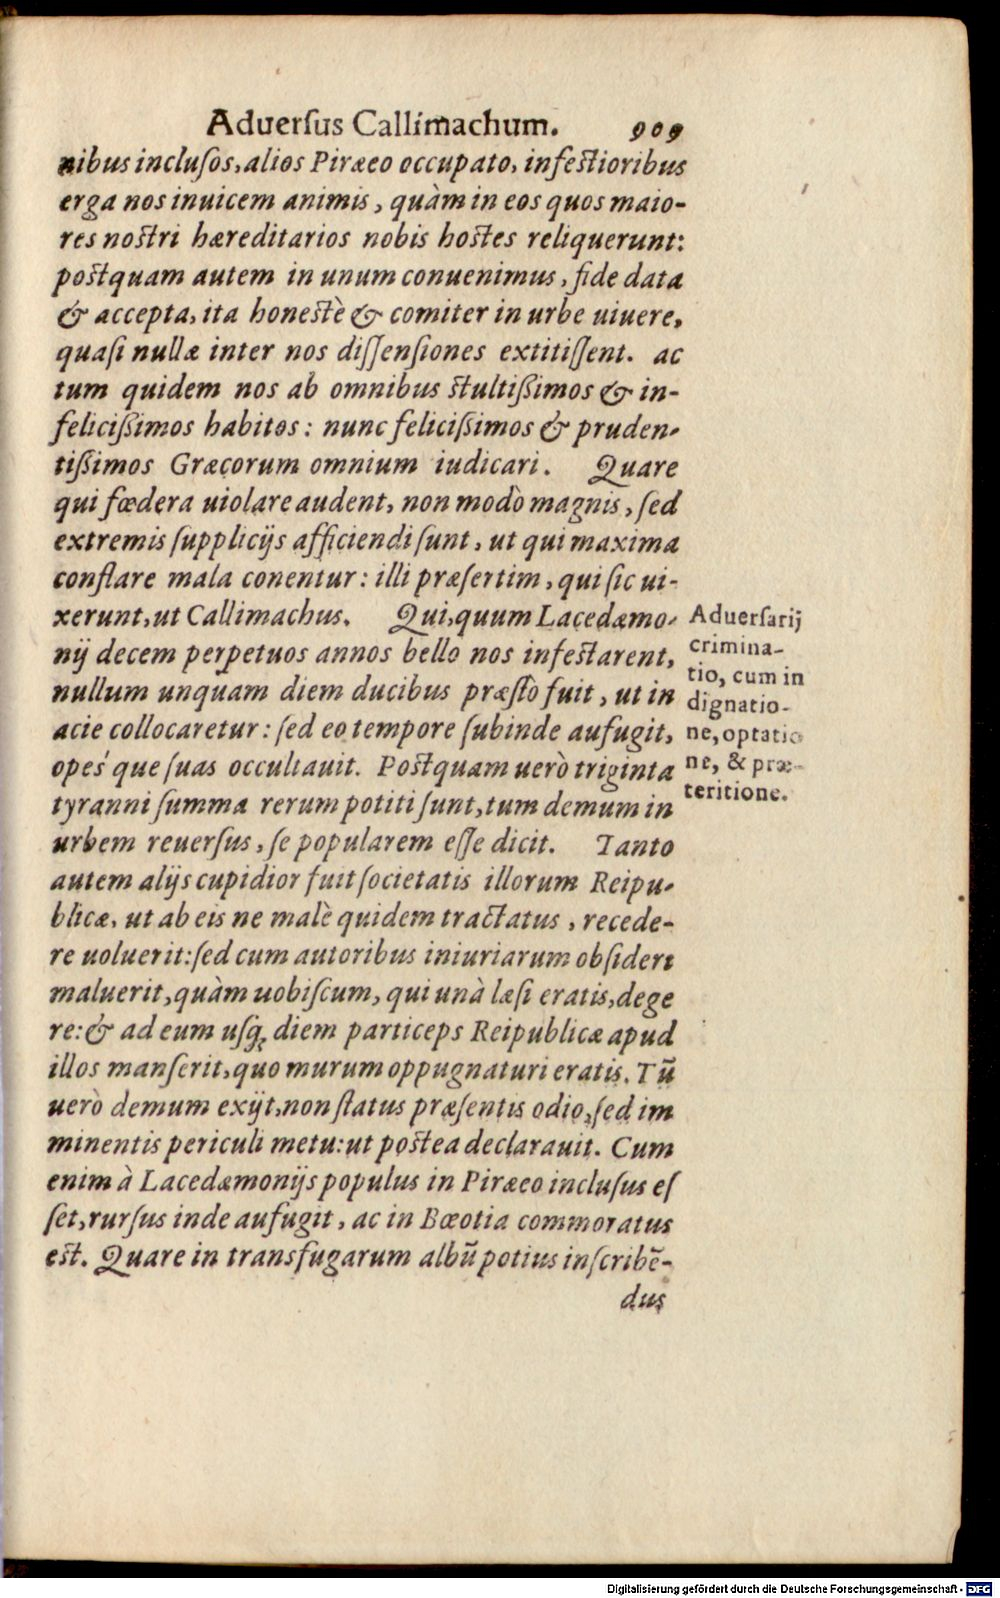 Aduerſus Callimachum. 909
nibus incluſos, alios Piræeo occupato, infeſtioribus
erga nos inuicem animis, quàm in eos quos maio-
res noſtri hæreditarios nobis hoſtes reliquerunt:
poſtquam autem in unum conuenimus, fide data
& accepta, ita honeſtè & comiter in urbe uiuere,
quaſi nullæ inter nos diſſenſiones extitiſſent. ac
tum quidem nos ab omnibus ſtultißimos & in-
felicißimos habitos: nunc felicißimos & pruden-
tißimos Græcorum omnium iudicari. Quare
qui fœdera uiolare audent, non modò magnis, ſed
extremis ſupplicijs afficiendi ſunt, ut qui maxima
conflare mala conentur: illi præſertim, qui ſic ui-
xerunt, ut Callimachus. Qui, quum Lacedæmo-
nij decem perpetuos annos bello nos infeſtarent,
nullum unquam diem ducibus præſtò fuit, ut in
acie collocaretur: ſed eo tempore ſubinde aufugit,
opeś que ſuas occultauit. Poſtquam uerò triginta
tyranni ſumma rerum potiti ſunt, tum demum in
urbem reuerſus, ſe popularem eſſe dicit. Tanto
autem alijs cupidior fuit ſocietatis illorum Reipu-
blicæ, ut ab eis ne malè quidem tractatus, recede-
re uoluerit: ſed cum autoribus iniuriarum obſideri
maluerit, quàm uobiſcum, qui unà læſi eratis, dege
re: & ad eum uſq; diem particeps Reipublicæ apud
illos manſerit, quo murum oppugnaturi eratis. Tū
uerò demum exijt, non ſtatus præſentis odio, ſed im
minentis periculi metu: ut poſtea declarauit. Cum
enim à Lacedæmonijs populus in Piræeo incluſus eſ
ſet, rurſus inde aufugit, ac in Bœotia commoratus
eſt. Quare in transfugarum albū potius inſcribē-
dus
Aduerſarij
crimina-
tio, cum in
dignatio-
ne, optatio
ne, & præ-
teritione.
Digitalisierung gefördert durch die Deutsche Forschungsgemeinschaft - DFG